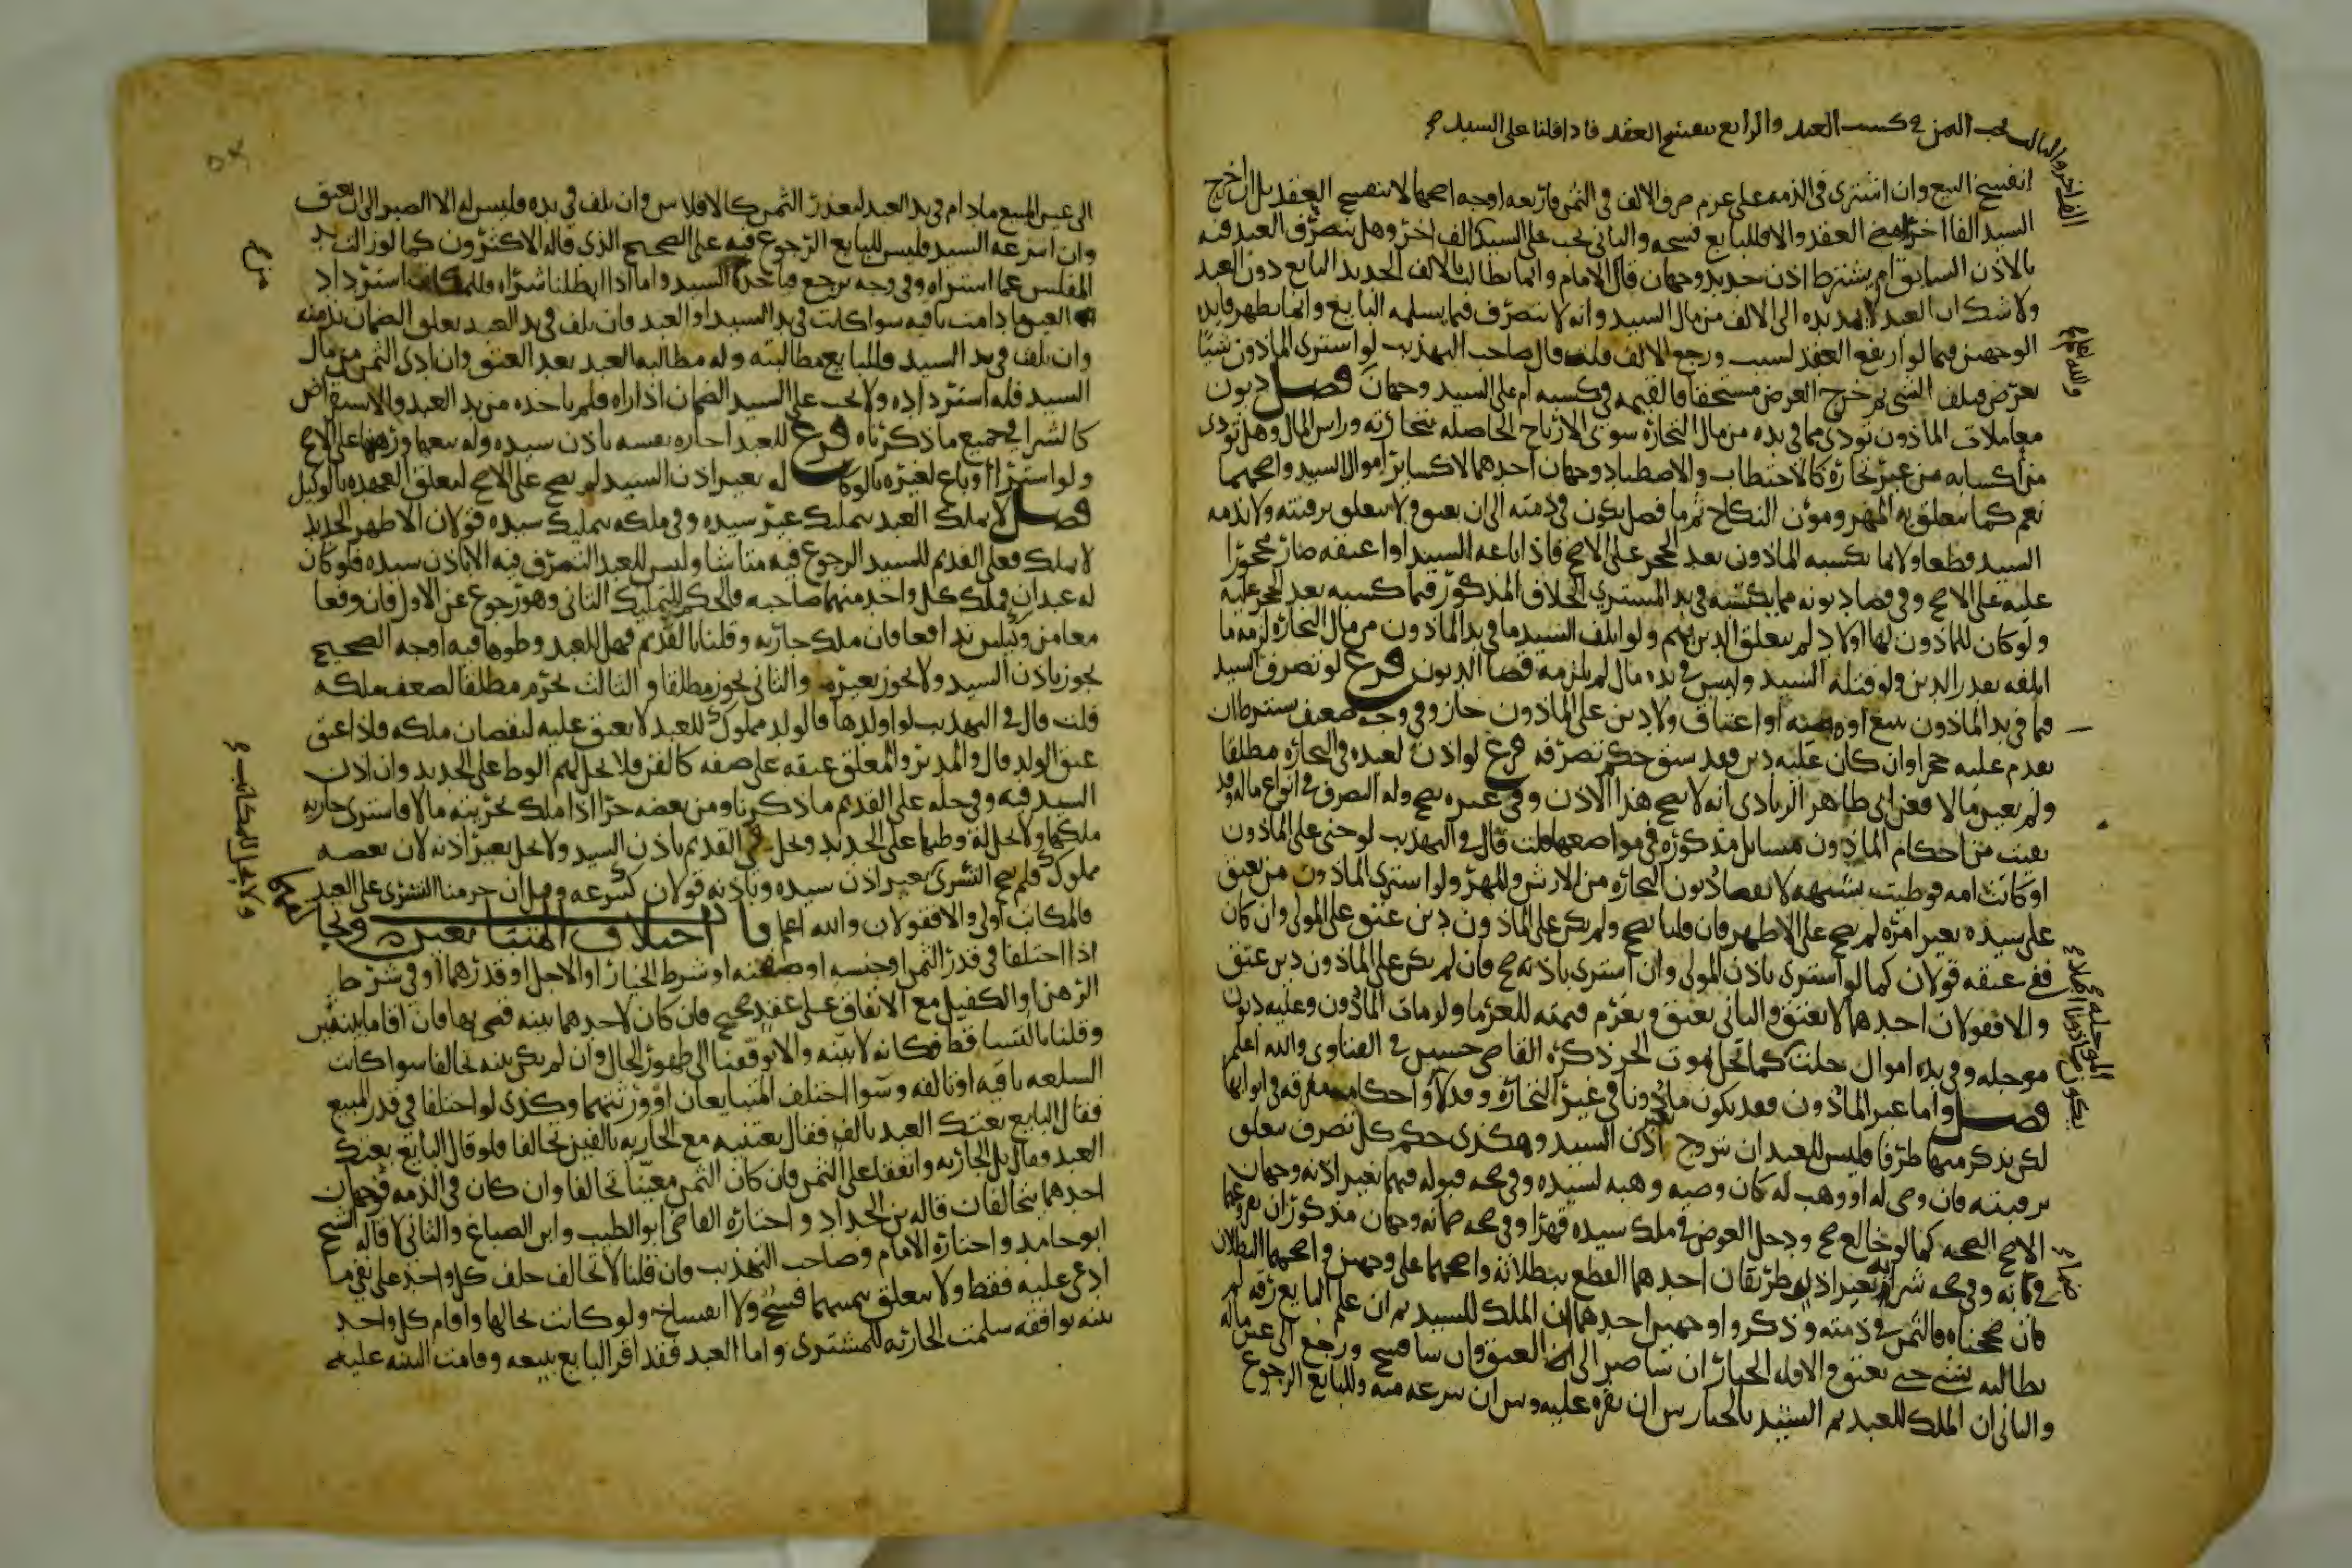 الفا اخر والثالث يجب الثمن في كسب العبد والرابع ينفسخ العقد فاذا قلنا على السيد صح
انفسخ البيع وان اشترى في الذمه على عزم صرف الالف في الثمن فاربعه اوجه اصحها لا ينفسخ العقد بل ان اخرج
السيد الفا اخر امضى العقد والا فللبايع فسخه والثاني يجب على السيد الف اخر وهل يتصرف العبد فيه
بالاذن السابق ام يشترط اذن جديد وجهان قال الامام وانما يطالب بالالف الجديد البايع دون العبد
ولا شك ان العبد لا يمد يده الى الالف من مال السيد وانه لا يتصرف فيما يسلمه البايع وانما يظهر فايده
الوجهين فيما لو ارتفع العقد بسبب ورجع الالف قلت قال صاحب التهذيب لو اشترى الماذون شيا
بعرض فتلف الشي ثم خرج العرض مستحقا فالقيمه في كسبه ام على السيد وجهان فصل ديون
معاملات الماذون تودى مما في يده من مال التجاره سوى الارباح الحاصله بتجارته وراس المال وهل تودى
من اكسابه من غير تجاره كالاحتطاب والاصطياد وجهان احدهما لا كساير اموال السيد واصحهما
نعم كما يتعلق به المهر ومون النكاح ثم ما فضل يكون في ذمته الى ان يعتق ولا يتعلق برقبته ولا بذمه
السيد قطعا ولا بما يكسبه الماذون بعد الحجر على الاصح فاذا باعه السيد او اعتقه صار محجورا
عليه على الاصح وفي قضا ديونه مما يكسبه في يد المشتري الخلاف المذكور فيما كسبه بعد الحجر عليه
ولو كان للماذون لها اولاد لم يتعلق الدين بهم ولو اتلف السيد ما في يد الماذون من مال التجاره لزمه ما
اتلفه بقدر الدين ولو قتله السيد وليس في يده مال لم يلزمه قضا الديون فرع لو تصرف السيد
فيما في يد الماذون ببيع او هبه او اعتاق ولا دين على الماذون جاز وفي وجه ضعيف يشترط ان
يقدم عليه حجرا وان كان عليه دين فقد سبق حكم تصرفه فرع لو اذن لعبده في التجاره مطلقا
ولم يعين مالا فعن ابي طاهر الزيادي انه لا يصح هذا الاذن وفي غيره يصح وله التصرف في انواع ماله وقد
بقيت من احكام الماذون مسايل مذكوره في مواضعها قلت قال في التهذيب لو جنى على الماذون
او كانت امه فوطيت بشبهه لا يقضا ديون التجاره من الارش والمهر ولو اشترى الماذون من يعتق
على سيده بغير امره لم يصح على الاظهر فان قلنا يصح ولم يكن على الماذون دين عتق على المولى وان كان
ففي عتقه قولان كما لو اشترى باذن المولى وان اشترى باذنه صح فان لم يكن على الماذون دين عتق
والا فقولان احدهما لا يعتق والثاني يعتق ويغرم قيمته للغرما ولو مات الماذون وعليه ديون
موجله وفي يده اموال حلت كما تحل بموت الحر ذكره القاضي حسين في الفتاوى والله اعلم
فصل واما غير الماذون فقد يكون ماذونا في غير التجاره وقد لا واحكامه مفرقه في ابوابها
لكن نذكر منها طرفا فليس للعبد ان يتزوج اذن السيد وهكذى حكم كل تصرف يتعلق
برقبته فان وصي له او وهب له كان وصيه وهبه لسيده وفي صحه قبوله فيهما بغير اذنه وجهان
الاصح الصحه كما لو خالع صح ودخل العوض في ملك سيده قهرا وفي صحه ضمانه وجهان مذكوران بفروعها
في بابه وفي صحه شرايه بغير اذنه طريقان احدهما القطع ببطلانه واصحهما على وجهين واصحهما البطلان
فان صححناه فالثمن في ذمته وذكروا وجهين احدهما ان الملك للسيد ثم ان علم البايع رقه لم
يطالبه بشي حتى يعتق والا فله الخيار ان شا صبر الى العتق وان شا فسخ ورجع الى عين ماله
والثاني ان الملك للعبد ثم السيد بالخيار بين ان يقره عليه وبين ان ينزعه منه وللبايع الرجوع
والله اعلم
الموجله
يكون ماذونا
ضمانه
الى عين المبيع مادام في يد العبد لتعذر الثمن كالافلاس وان تلف في يده فليس له الا الصبر الى ان يعتق
وان انتزعه السيد فليس للبايع الرجوع فيه على الصحيح الذي قاله الاكثرون كما لو زالت يد
المفلس عما اشتراه وفي وجه يرجع فياخذه السيد واما اذا ابطلنا شراه فللمالك استرداد
العين ما دامت باقيه سوا كانت في يد السيد او العبد فان تلف في يد العبد تعلق الضمان بذمته
وان تلف في يد السيد فللبايع مطالبته وله مطالبه العبد بعد العتق وان ادى الثمن من مال
السيد فله استرداده ولا يجب على السيد الضمان اذا راه فلم ياخذه من يد العبد والاستقراض
كالشرا في جميع ما ذكرناه فرع للعبد اجاره نفسه باذن سيده وله بيعها ورهنها على الاصح
ولو اشترا او باع لغيره بالوكاله بغير اذن السيد لم يصح على الاصح لتعلق العهده بالوكيل
فصل لا يملك العبد بتمليك غير سيده وفي ملكه بتمليك سيده قولان الاظهر الجديد
لا يملك فعلى القديم للسيد الرجوع فيه متا شا وليس للعبد التصرف فيه الا باذن سيده فلو كان
له عبدان فملك كل واحد منهما صاحبه فالحكم للتمليك الثاني وهو رجوع عن الاول فان وقعا
معا من وكيلين تدافعا فان ملك جاريه وقلنا بالقديم فهل للعبد وطوها فيه اوجه الصحيح
يجوز باذن السيد ولا يجوز بغيره والثاني يجوز مطلقا والثالث يحرم مطلقا لضعف ملكه
قلت قال في التهذيب لو اولدها فالولد مملوك للعبد لا يعتق عليه لنقصان ملكه فاذا عتق
عتق الولد قال والمدبر والمعلق عتقه على صفه كالقن فلا يحل لهم الوط على الجديد وان اذن
السيد فيه وفي حله على القديم ما ذكرنا ومن بعضه حرا اذا ملك بحريته مالا فاشترى جاريه
ملكها ولا يحل له وطيها على الجديد وتحل في القديم باذن السيد ولا يحل بغير اذنه لان بعضه
مملوك فلم يصح التسري بغير اذن سيده وباذنه قولان كتبرعه وقيل ان حرمنا التسرى على العبد
فالمكاتب اولى والا فقولان والله اعلم باب اختلاف المتبايعين وتحالفهما
اذا اختلفا في قدر الثمن او جنسه او صفته او شرط الخيار او الاجل او قدرهما او في شرط
الرهن او الكفيل مع الاتفاق على عقد صحيح فان كان لاحدهما بينه قضى بها فان اقاما بينتين
وقلنا بالتساقط فكانه لا بينه والا توقفنا الى ظهور الحال وان لم يكن بينه تحالفا سوا كانت
السلعه باقيه او تالفه وسوا اختلف المتبايعان او ورثتهما وكذى لو اختلفا في قدر المبيع
فقال البايع بعتك العبد بالف فقال بعتنيه مع الجاريه بالفين تحالفا فلو قال البايع بعتك
العبد وقال بل الجاريه واتفقا على الثمن فان كان الثمن معينا تحالفا وان كان في الذمه فوجهان
احدهما يتحالفان قاله بن الحداد واختاره القاضي ابو الطيب وابن الصباغ والثاني لا قاله الشيخ
ابو حامد واختاره الامام وصاحب التهذيب فان قلنا لا تحالف حلف كل واحد على نفي ما
ادعى عليه فقط ولا يتعلق بيمينهما فسخ ولا انفساخ ولو كانت بحالها واقام كل واحد
بينه توافقه سلمت الجاريه للمشترى واما العبد فقد اقر البايع ببيعه وقامت البينه عليه
ولا يحل للمكاتب